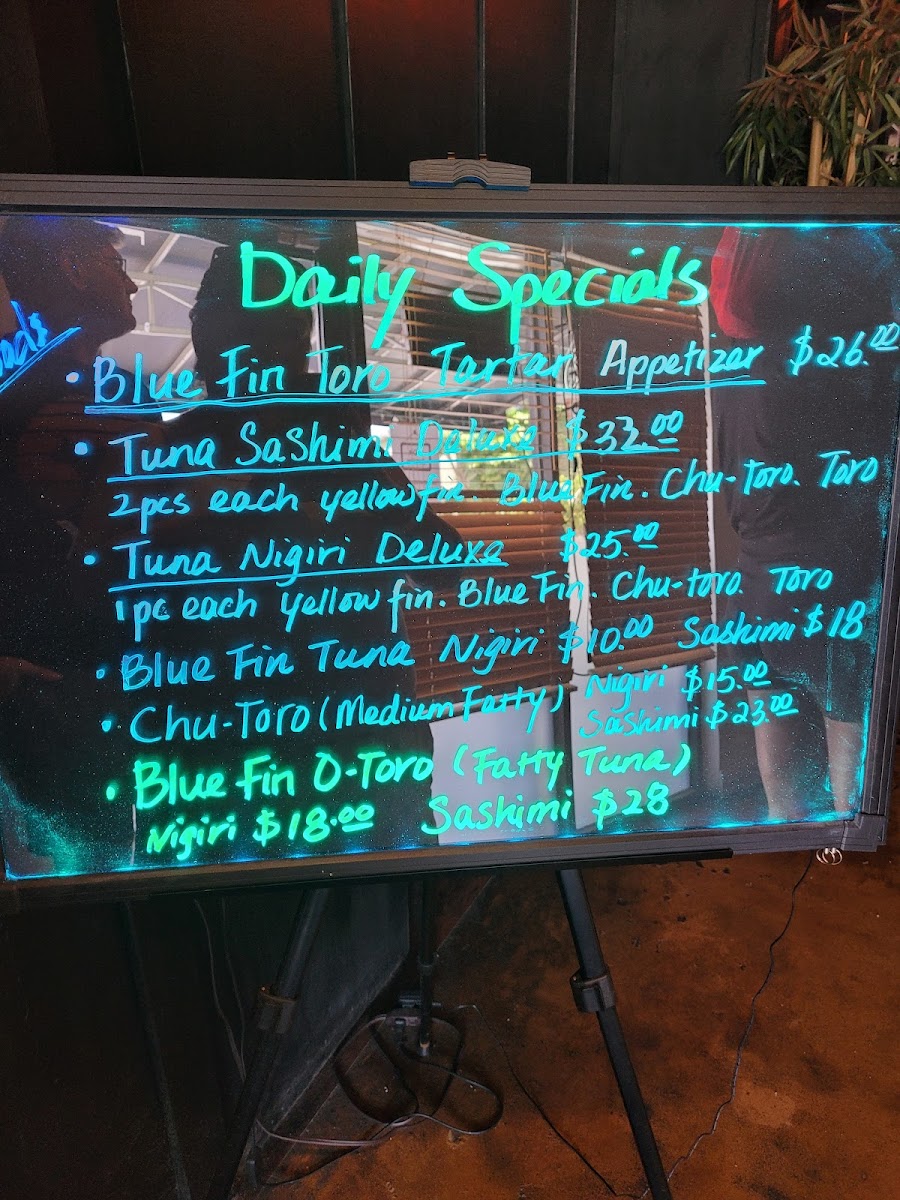 Daily Specials
• Blue Fin Toro Tartar Appetizer $26.00
• Tuna Sashimi Deluxe $33.00
2pcs each yellow fin. Blue Fin. Chu-toro. Toro
• Tuna Nigiri Deluxe $25.00
1pc each yellow fin. Blue Fin. Chu-toro. Toro
• Blue Fin Tuna Nigiri $10.00 Sashimi $18
• Chu-Toro (Medium Fatty) Nigiri $15.00
Sashimi $23.00
• Blue Fin O-Toro (Fatty Tuna)
Nigiri $18.00 Sashimi $28